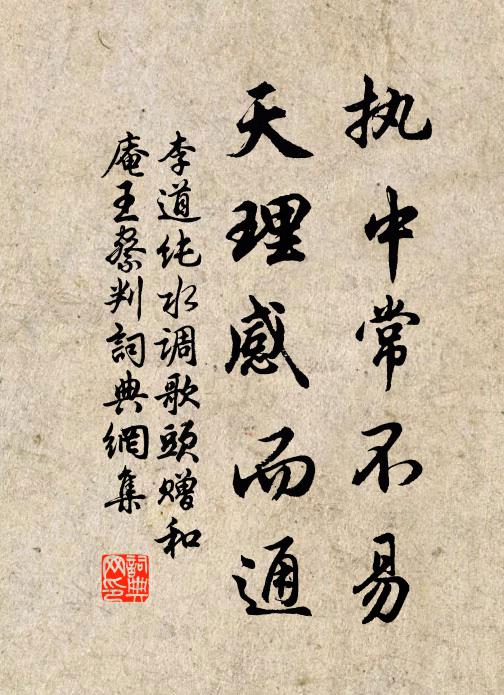 执中常不易
天理感而通
李道纯水调歌头赠和
庵王察判詞典網集
詞典网印